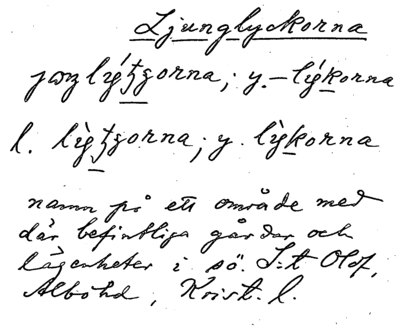 Ljunglyckorna
jɯŋlýʈʂorna; y. -lýkorna
l. lỳʈʂorna; y. lỳkorna
namn på ett område med
där befintliga gårdar och
lägenheter i sö. S:t Olof,
Albo hd, Krist. l.